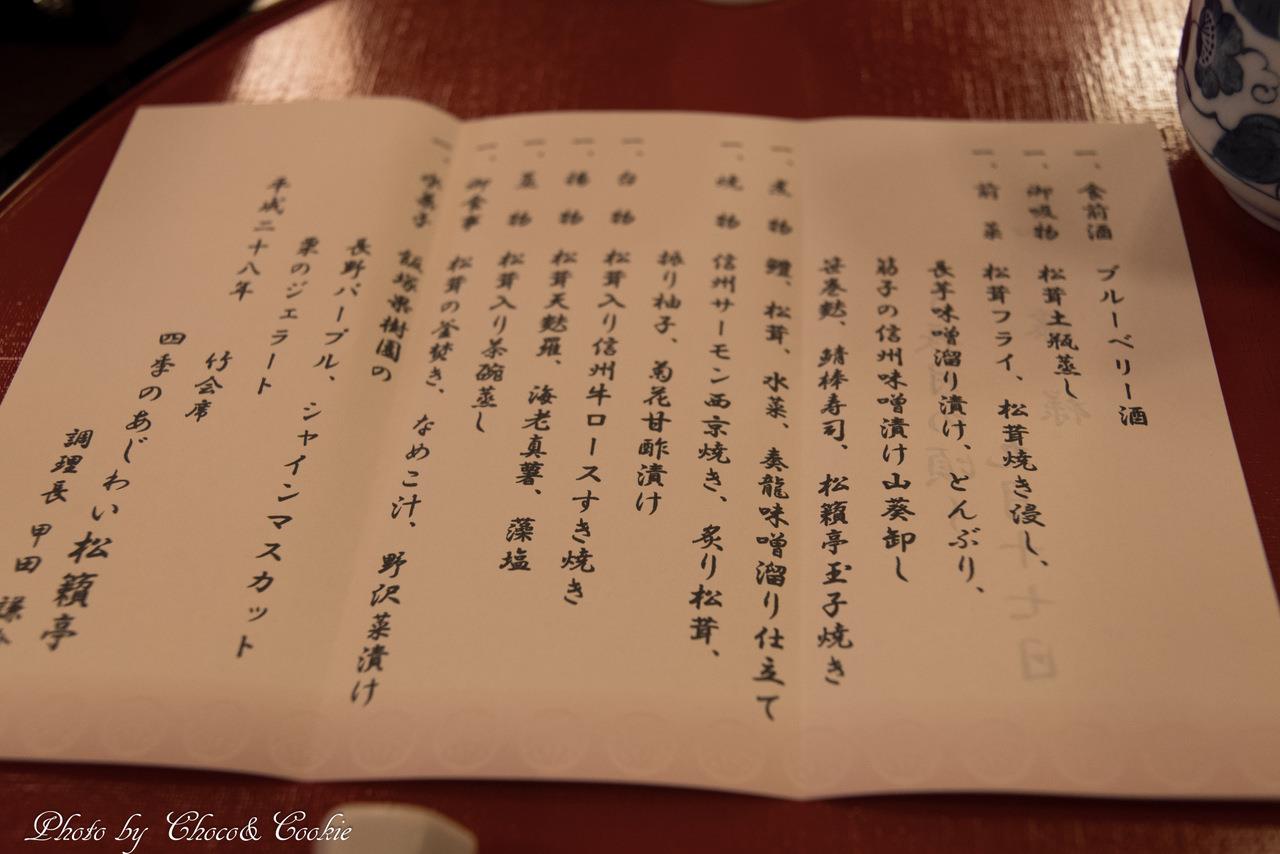 一、食前酒 ブルーベリー酒
一、御吸物 松茸土瓶蒸し
一、前菜 松茸フライ、松茸焼き浸し、
長芋味噌溜り漬け、とんぶり、
筋子の信州味噌漬け山葵卸し
笹巻麩、鯖棒寿司、松籟亭玉子焼き
一、煮物 鱧、松茸、水菜、奏龍味噌溜り仕立て
一、焼物 信州サーモン西京焼き、炙り松茸、
振り柚子、菊花甘酢漬け
一、台物 松茸入り信州牛ロースすき焼き
一、揚物 松茸天麩羅、海老真薯、藻塩
一、蒸物 松茸入り茶碗蒸し
一、御食事 松茸の釜焚き、なめこ汁、野沢菜漬け
一、水菓子 飯塚果樹園の
長野パープル、シャインマスカット
栗のジェラート
平成二十八年
竹会席
四季のあじわい松籟亭
調理長 甲田
Photo by Choco& Cookie